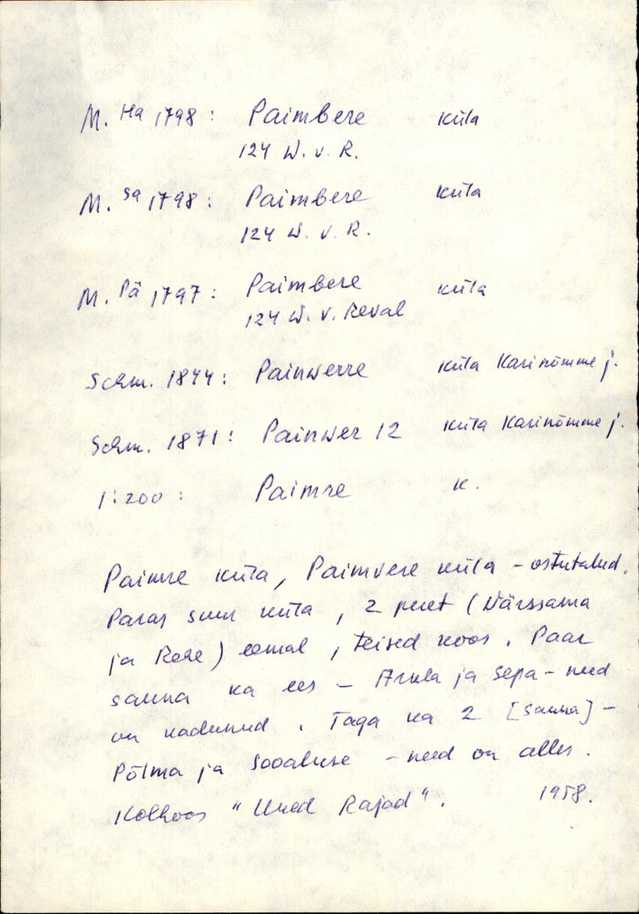 M. Ha 1798: Paimbere küla
124 W. v. R.
M. Sa 1798: Paimbere küla
124 W. v. R.
M. Pä 1797: Paimbere küla
124 W. v. Reval
Schm. 1844: Painwerre küla Karinõmme j.
Schm. 1871: Painwer 12 küla Karinõmme j.
1:200: Paimre k.
Paimre küla, Paimvere küla - ostutalud.
Paras suur küla, 2 peret (Närssama
ja Rere) eemal, teised koos. Paar
sauna ka ees - Arula ja Sepa - need
on kadunud. Taga ka 2 [sauna] -
Põlma ja Sooaluse - need on alles.
Kolhoos "Uued Rajad". 1958.